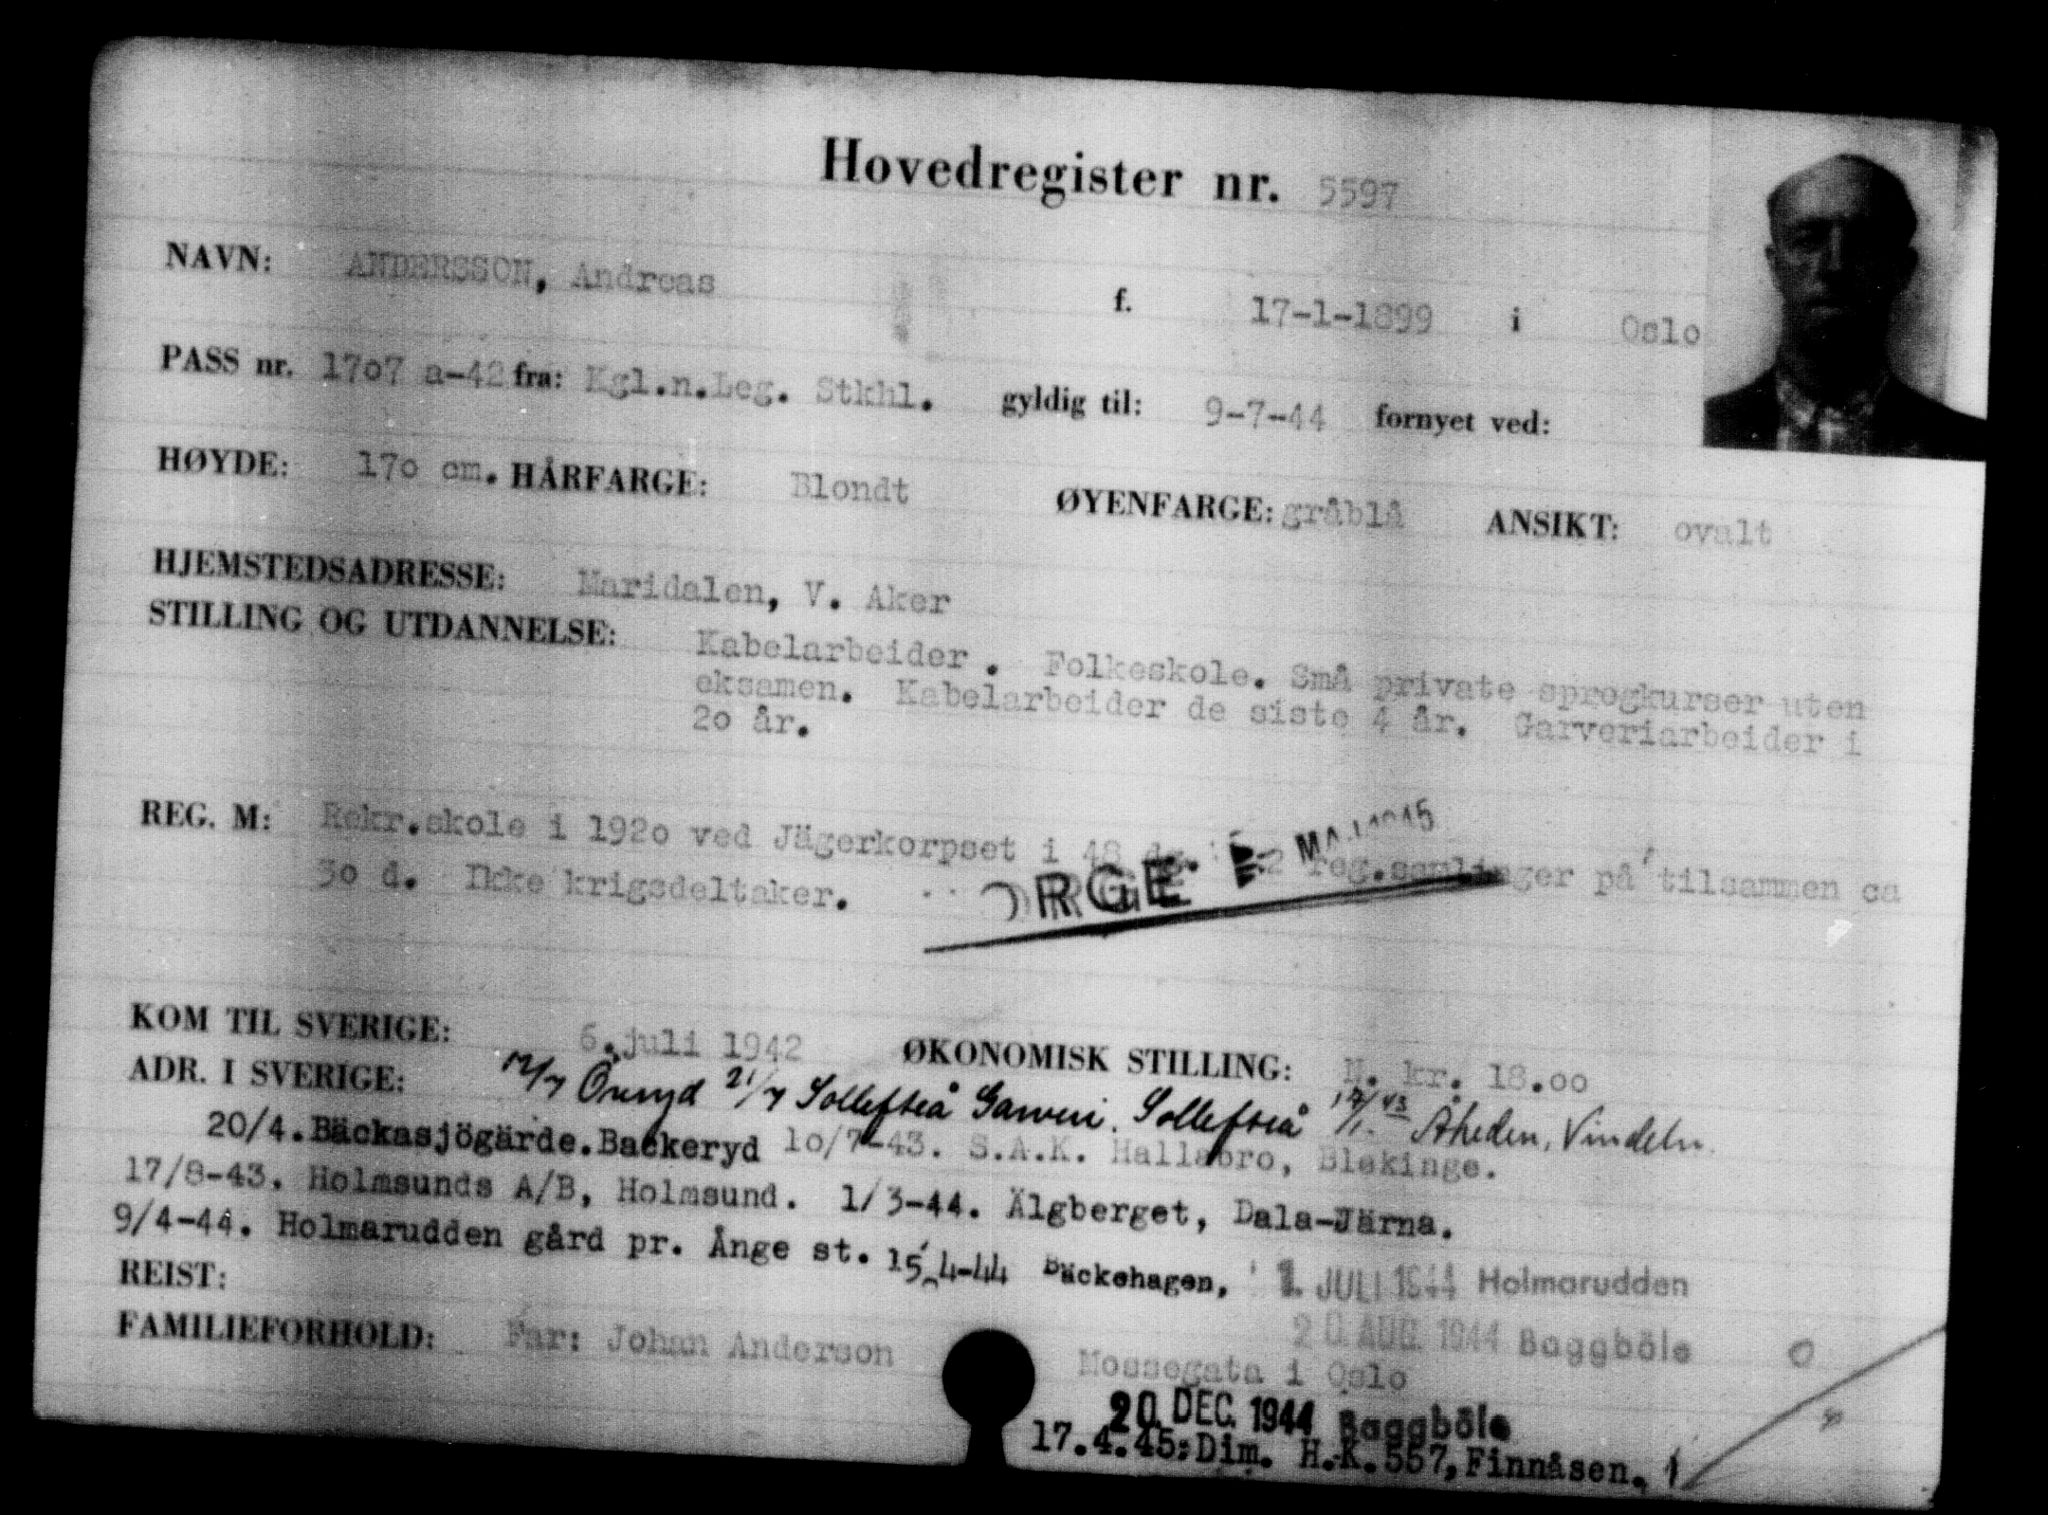 Hovedregister nr. 5597
NAVN: ANDERSSON, Andreas f. 17-1-1899 i Oslo
PASS nr. 17o7 a-42 fra: Kgl.n.Leg. Stkhl. gyldig til: 9-7-44 fornyet ved:
HØYDE: 17o cm. HÅRFARGE: Blondt ØYENFARGE: gråblå ANSIKT: ovalt
HJEMSTEDSADRESSE: Maridalen, V. Aker
STILLING OG UTDANNELSE: Kabelarbeider. Folkeskole. Små private sprogkurser uten
eksamen. Kabelarbeider de siste 4 år. Garveriarbeider i
2o år.
REG. M: Rekr.skole i 192o ved Jägerkorpset i 48 dg. 2 reg.samlinger på tilsammen ca
3o d. Ikke krigsdeltaker.
ORGE MAJ 1945
KOM TIL SVERIGE: 6.juli 1942 ØKONOMISK STILLING: N. kr. 18.oo
ADR. I SVERIGE: 12/7 Öreryd 21/7 Sollefteå Garveri. Sollefteå 17/1.43 Åheden, Vindeln.
20/4. Bäckasjögärde. Backeryd 1o/7-43. S.A.K. Hallabro, Blekinge.
17/8-43. Holmsunds A/B, Holmsund. 1/3-44. Älgberget, Dala-Järna.
9/4-44. Holmarudden gård pr. Ånge st. 15.4-44 Bäckehagen, 1. JULI 1944 Holmarudden
REIST: 20. AUG. 1944 Baggböle
FAMILIEFORHOLD: Far: Johan Anderson Mossegata i Oslo
20. DEC. 1944 Baggböle
17.4.45: Dim. H.K. 557, Finnåsen.